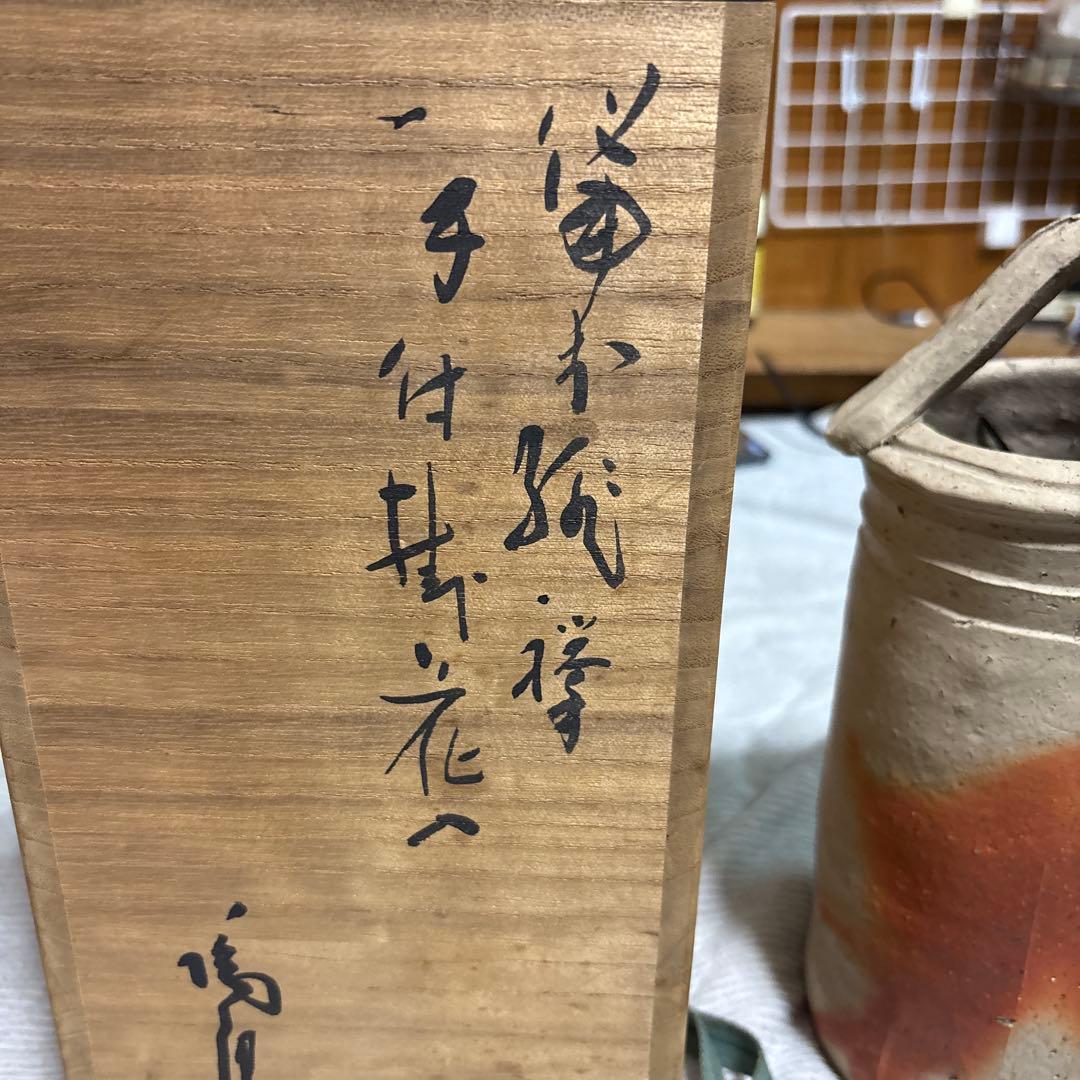 備前緋襷
一手付掛花入